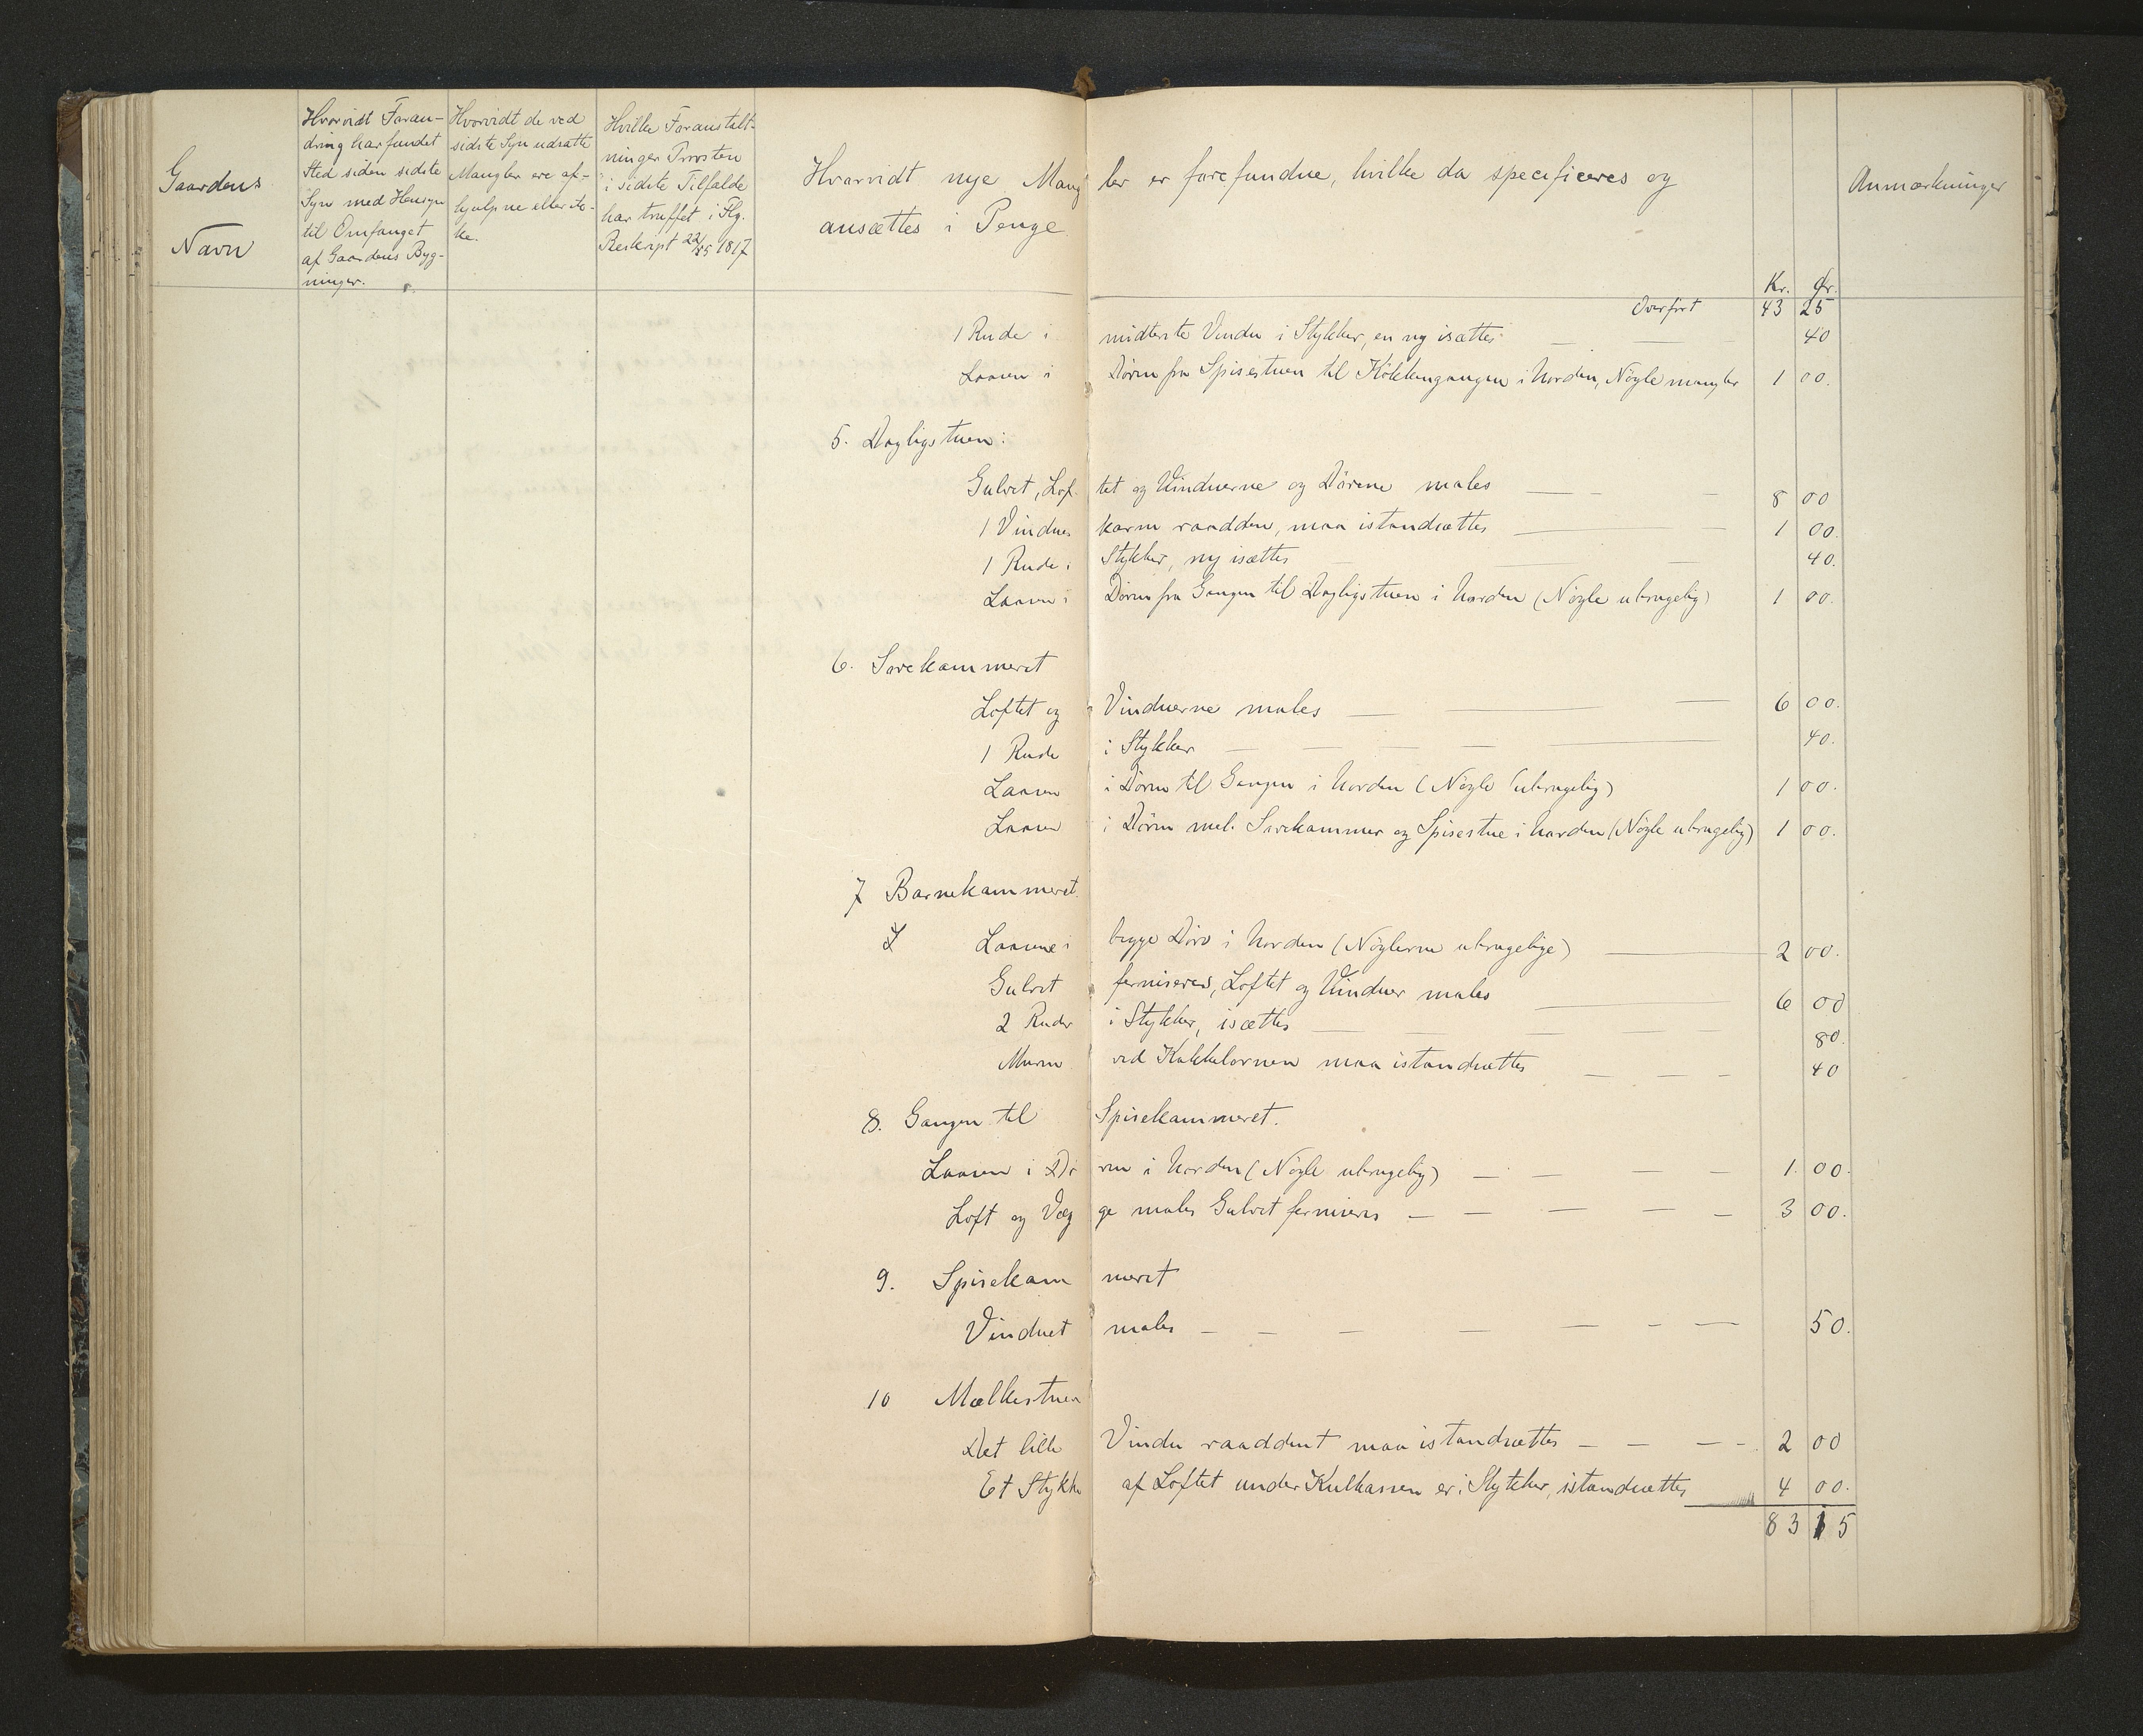 Gaardens
Navn
Hvorvidt Foran-
dring har fundet
Sted siden sidste
Syn med Hensyn
til Omfanget
af Gaardens Byg-
ninger.
Hvorvidt de ved
sidste Syn udsatte
Mangler ere af-
hjulpne eller ik-
ke.
Hvilke Foranstalt-
ninger Provsten
i sidste Tilfælde
har truffet i Flg.
Reskript 1817
Hvorvidt nye Mangler er forefundne, hvilke da specificeres og
ansættes i Penge
Anmærkninger
Kr. Ør.
Overført 43 25
1 Rude i midterste Vindu i Stykker, en ny isættes 40
Laasen i Døren fra Spisestuen til Kökkengangen i Uorden, Nögle mangler 1 00.
5. Dagligstuen:
Gulvet, Loftet og Vinduerne og Dörene males 8 00
1 Vindueskarm raadden, maa istandsættes 1 00.
1 Rude i Stykker, ny isættes 40.
Laasen i Dören fra Gangen til Dagligstuen i Uorden (Nögle ubrugelig) 1 00.
6. Sovekammeret
Loftet og Vinduerne males 6 00.
1 Rude i Stykker 40.
Laasen i Dören til Gangen i Uorden (Nögle ubrugelig) 1 00.
Laasen i Dören mel. Sovekammer og Spisestue i Uorden (Nögle ubrugelig) 1 00.
7 Barnekammeret.
Laasene i begge Döre i Uorden (Nöglerne ubrugelige) 2 00.
Gulvet ferniseres, Loftet og Vinduer males 6 00
2 Ruder i Stykker, isættes 80.
Muren ved Kakkelovnen maa istandsættes 40
8. Gangen til Spisekammeret.
Laasen i Dören i Uorden (Nögle ubrugelig) 1. 00.
Loft og Vægge males Gulvet ferniseres 3 00.
9. Spisekammeret
Vinduet males 50.
10 Mælkestuen
Det lille Vindu raaddent maa istandsættes 2 00
Et Stykke af Loftet under Kulkassen er i Stykker, istandsættes 4 00.
83 15